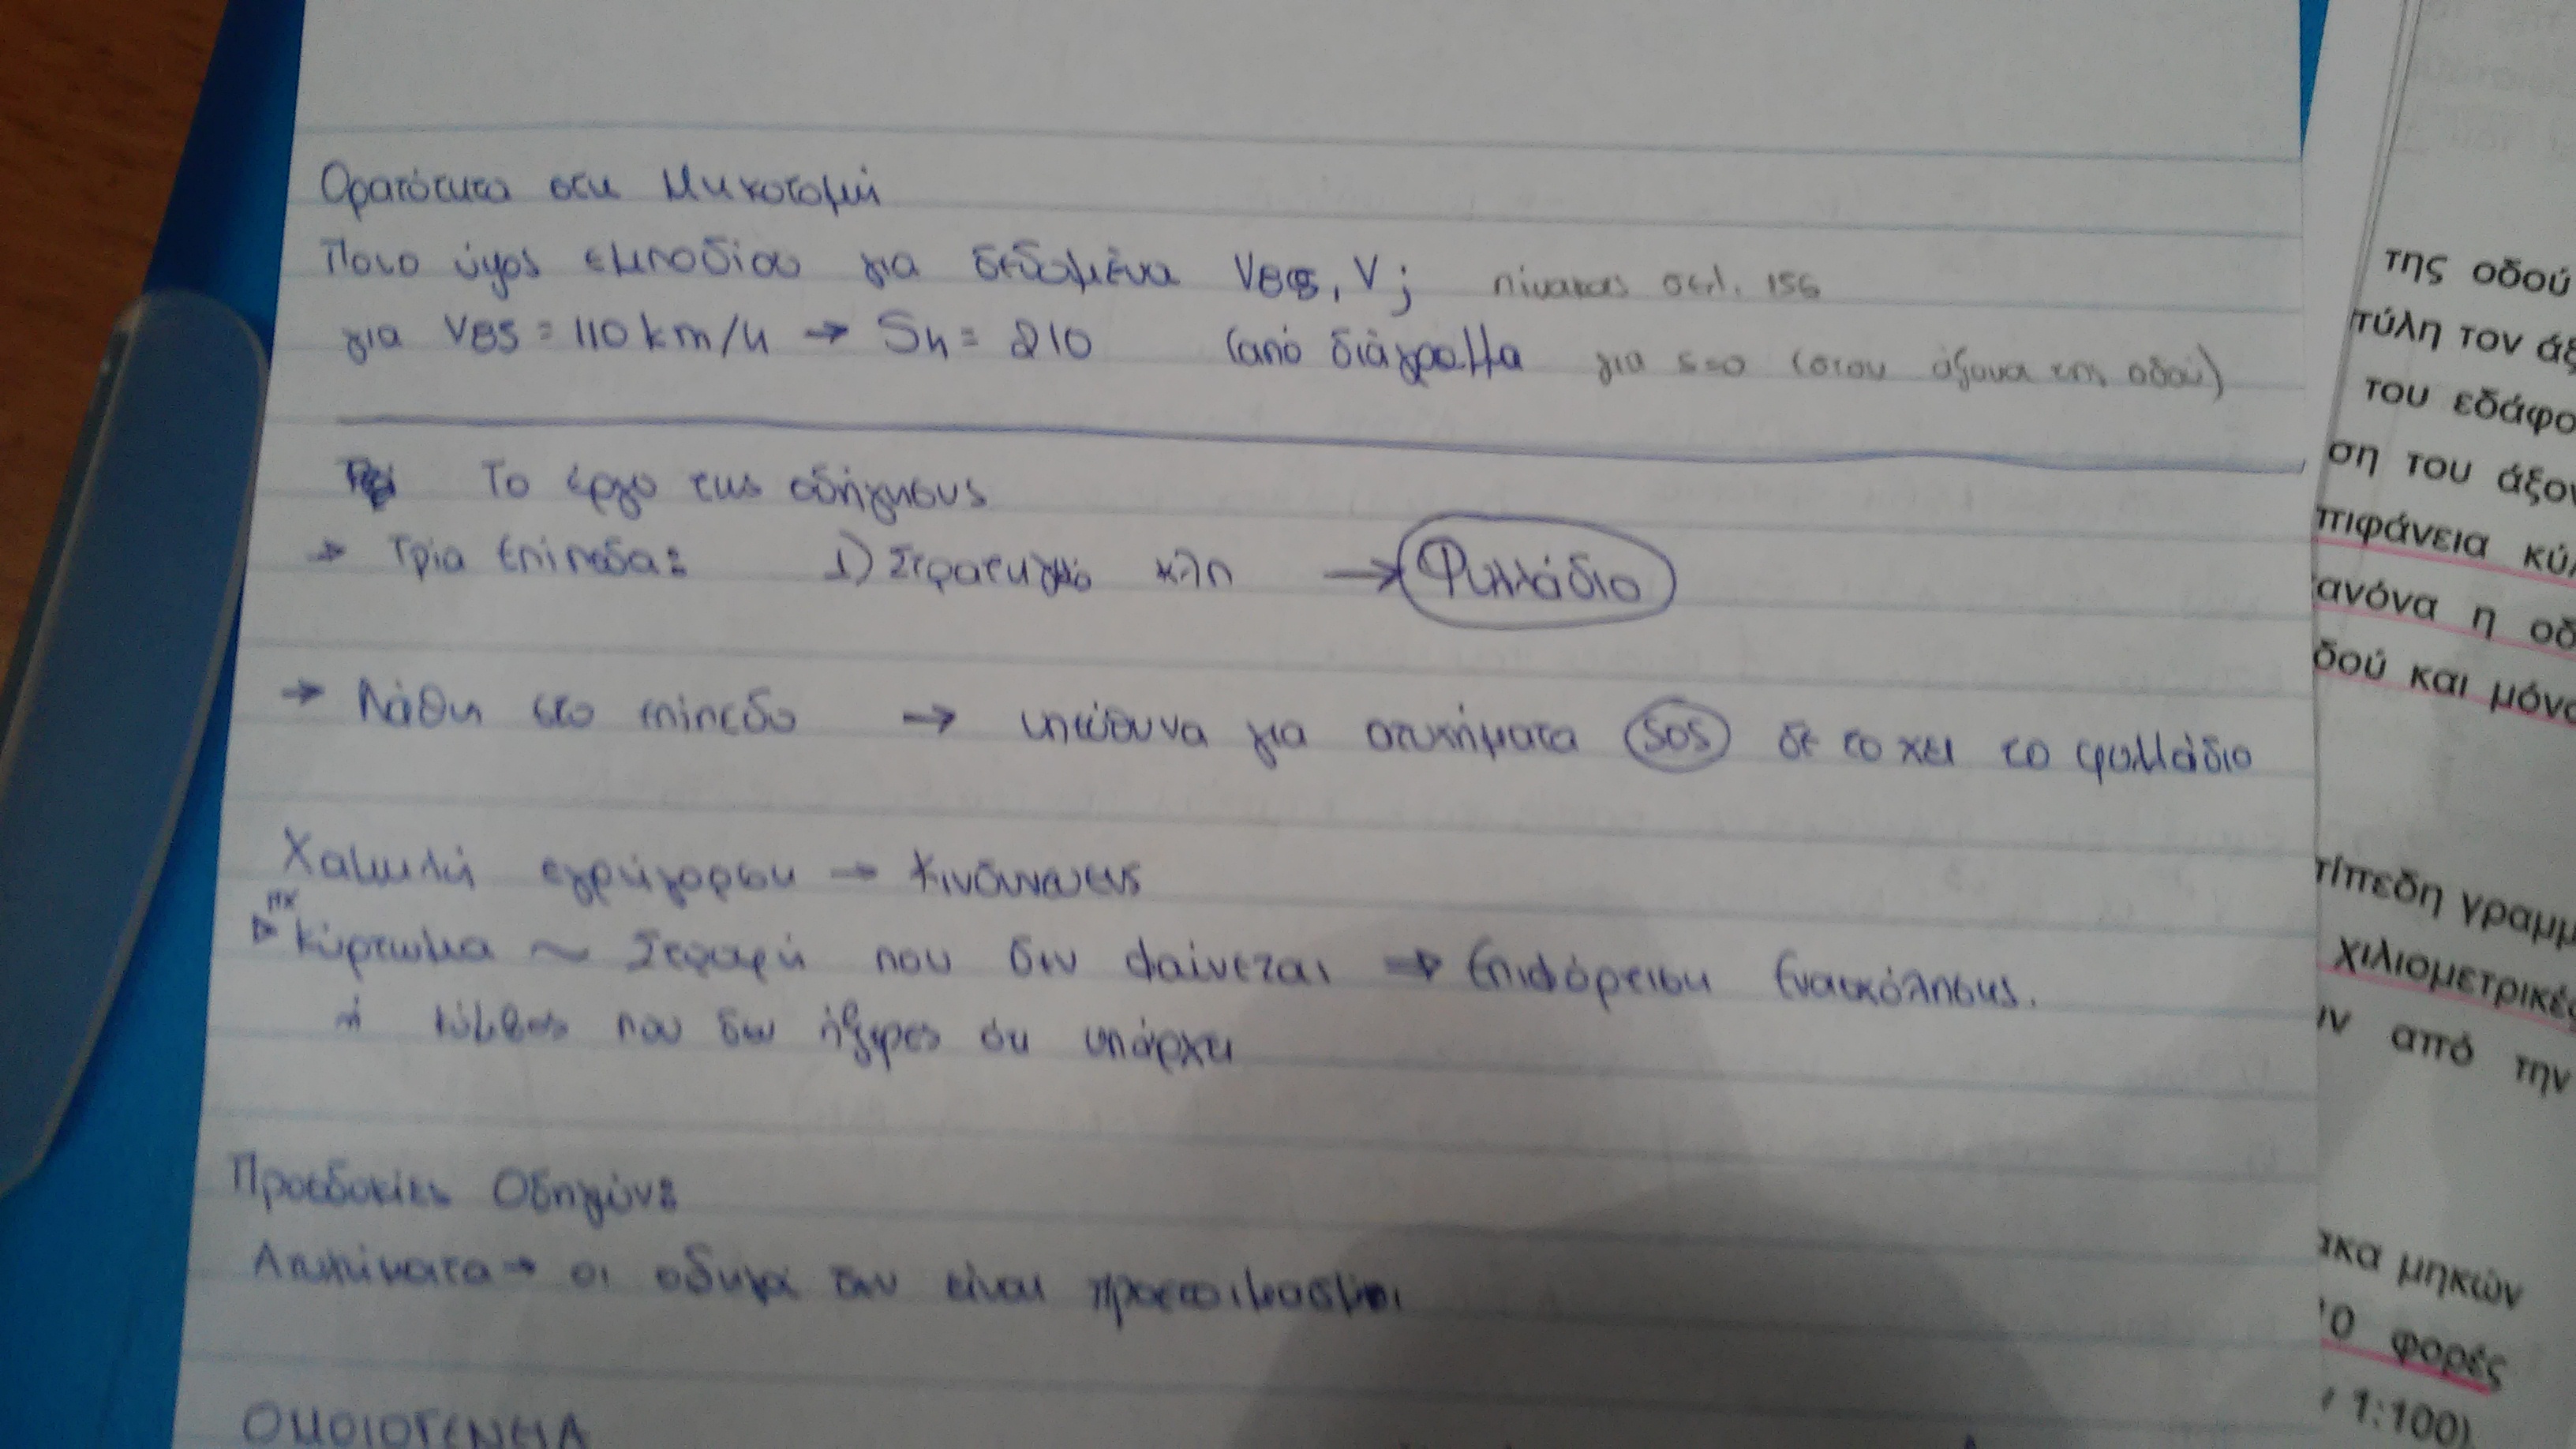 Ορατότητα στη Μηκοτομή
Ποιο ύψος εμποδίου για δεδομένα V85, V ; πίνακας σελ. 156
για V85 = 110 km/h → Sh = 210 (από διάγραμμα για s=0 (στον άξονα της οδού)
Το έργο της οδήγησης
→ Τρία Επίπεδα: 1) Στρατηγικό κλπ → Φυλλάδιο
→ Λάθη στο επίπεδο → υπεύθυνα για ατυχήματα SOS δε το χει το φυλλάδιο
Χαμηλή εγρήγορση → Κινδυνεύεις
πχ
Κύρτωμα ~ Στροφή που δεν φαίνεται → Επιφόρτιση Ενασχόλησης.
ή κόμβος που δεν ήξερες ότι υπάρχει
Προσδοκίες Οδηγών:
Ατυχήματα → οι οδηγοί δεν είναι προετοιμασμένοι
ΟΜΟΙΟΓΕΝΕΙΑ
της οδού
τύλη τον άξ
του εδάφο
ση του άξον
πιφάνεια κύ
ανόνα η οδ
δού και μόνο
τίπεδη γραμμ
χιλιομετρικές
ν από την
ακα μηκών
10 φορές
1:100)